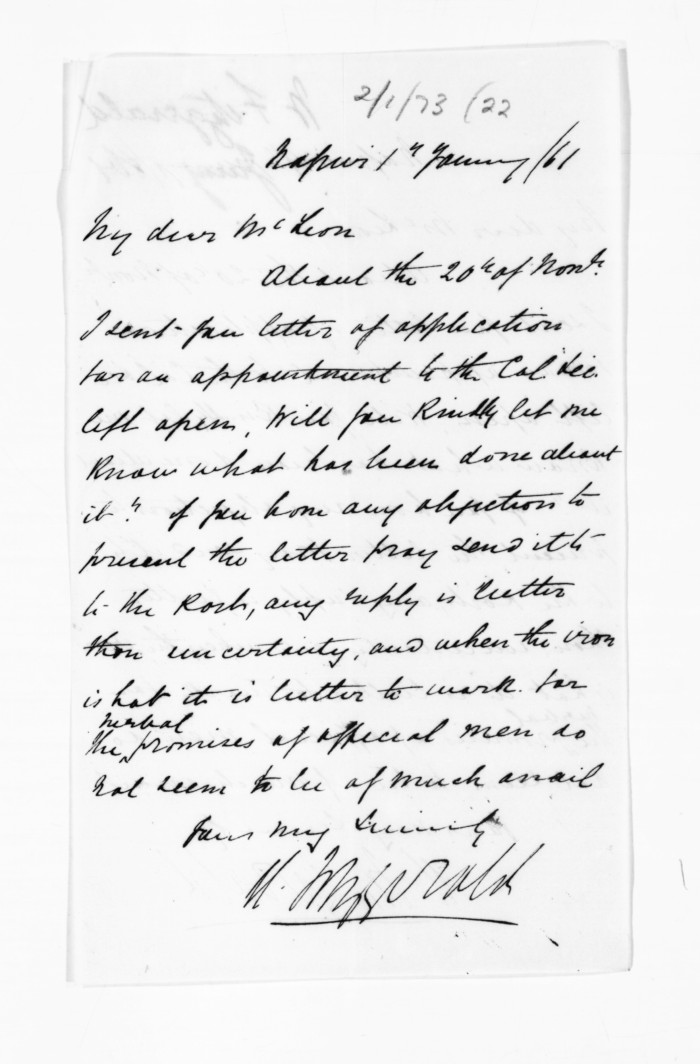 2/1/73 (22
Napier 1st January /61
My dear McLean
About the 20th of Novr.
I sent you letter of application
for an appointment to the Col. Sec.
left open, Will you kindly let me
know what has been done about
it? if you have any objection to
present the letter pray send it to
to the Post, any reply is better
than uncertainty, and when the iron
is hot it is better to work. for
the verbal promises of official men do
not seem to be of much avail
Yours very Sincerely
Fitzgerald